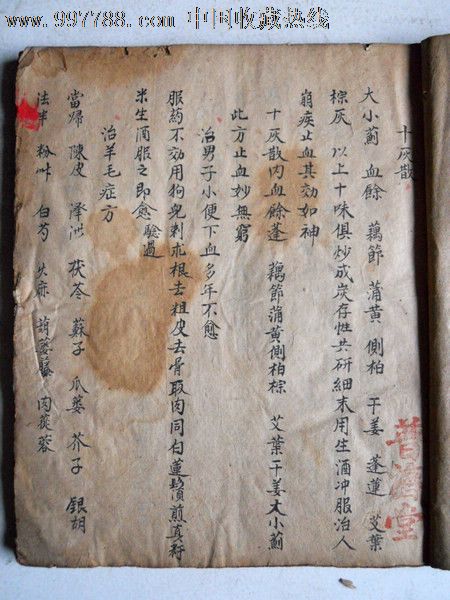 www.997788.com 中国收藏热线
十灰散
大小薊 血餘 藕節 蒲黄 側柏 干姜 蓬蓮 艾葉
棕灰 以上十味俱炒成炭存性共研細末用生酒冲服治人
崩疾止血其効如神
十灰散内血餘蓬 藕節蒲黄側柏棕 艾葉干姜大小薊
此方止血妙無窮
治男子小便下血多年不愈
服葯不効用狗兒刺朩根去粗皮去骨取肉同白蓮鬚煎真
米生酒服之即愈 驗過
治羊毛症方
當歸 陳皮 澤泄 茯苓 蘇子 瓜蒌 芥子 銀胡
法半 粉草 白芍 火麻 葫蒌 肉蓯蓉
堂